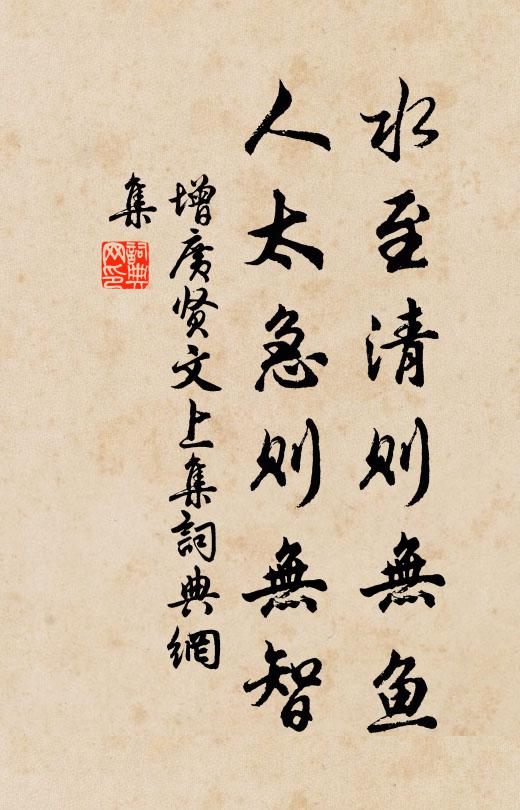 水至清则無鱼
人太急则無智
增廣贤文上集詞典網
集
詞典
网印